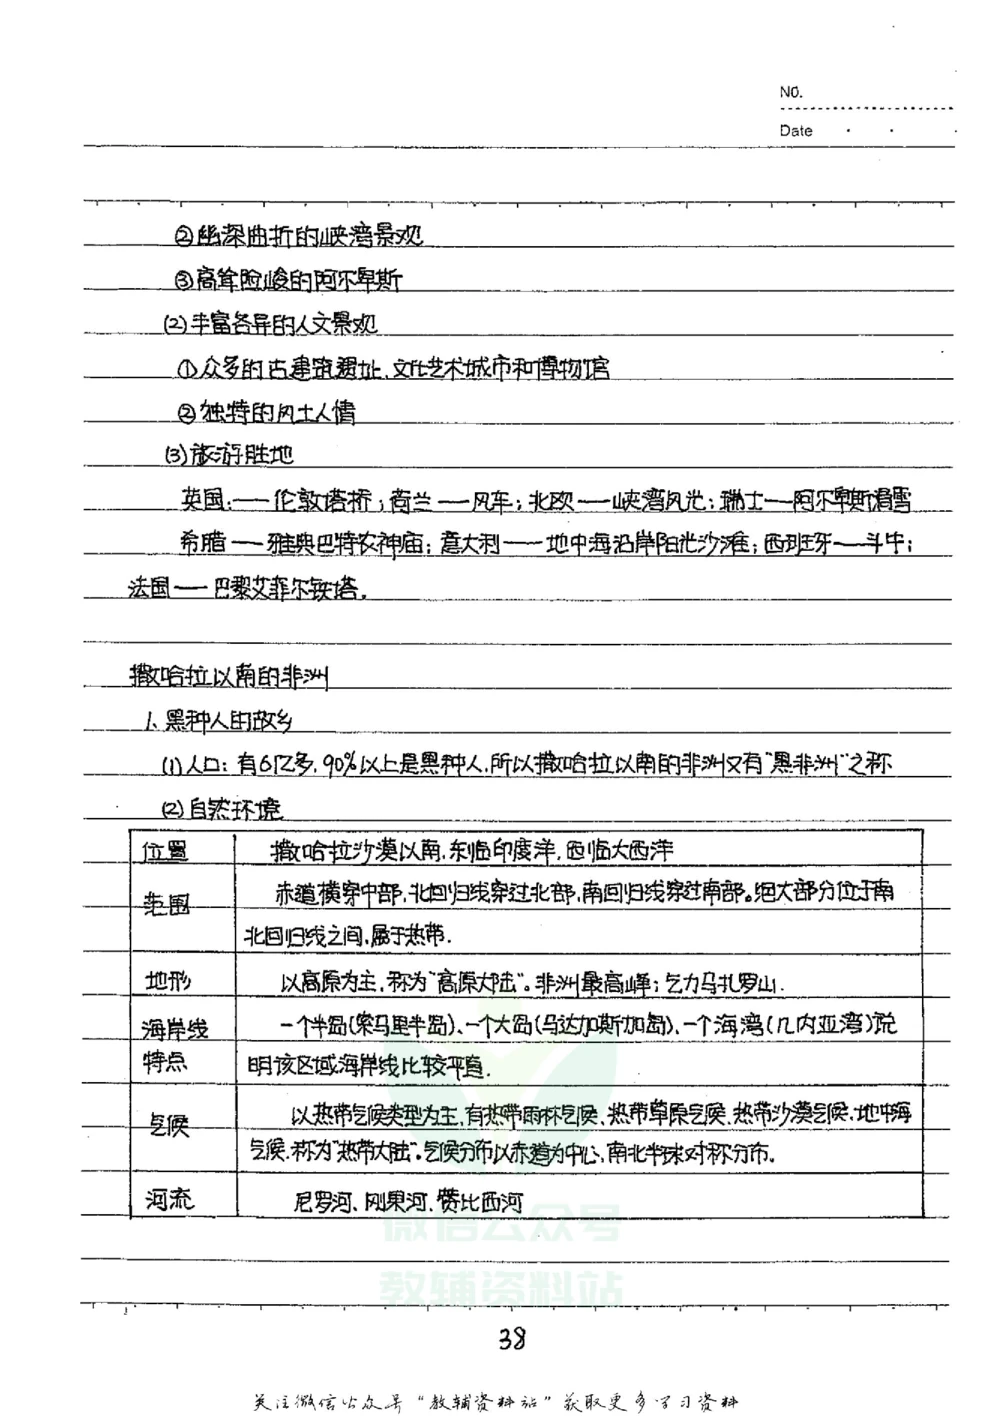 No.
Date
②幽深曲折的峡湾景观
③高耸险峻的阿尔卑斯
(2)丰富各异的人文景观
①众多的古建筑遗址、文化艺术城市和博物馆
②独特的风土人情
(3)旅游胜地
英国:——伦敦塔桥;荷兰——风车;北欧——峡湾风光;瑞士——阿尔卑斯滑雪
希腊——雅典巴特农神庙;意大利——地中海沿岸阳光沙滩;西班牙——斗牛;
法国——巴黎艾菲尔铁塔.
撒哈拉以南的非洲
1、黑种人的故乡
(1)人口:有6亿多,90%以上是黑种人,所以撒哈拉以南的非洲又有"黑非洲"之称
(2)自然环境
位置 撒哈拉沙漠以南,东临印度洋,西临大西洋
范围 赤道横穿中部,北回归线穿过北部,南回归线穿过南部。绝大部分位于南
北回归线之间,属于热带.
地形 以高原为主,称为"高原大陆"。非洲最高峰:乞力马扎罗山.
海岸线 一个半岛(索马里半岛)、一个大岛(马达加斯加岛)、一个海湾(几内亚湾)说
特点 明该区域海岸线比较平直.
气候 以热带气候类型为主,有热带雨林气候、热带草原气候、热带沙漠气候、地中海
气候,称为"热带大陆"。气候分布以赤道为中心,南北半球对称分布。
河流 尼罗河、刚果河、赞比西河
微信公众号
教辅资料站
38
关注微信公众号"教辅资料站"获取更多学习资料